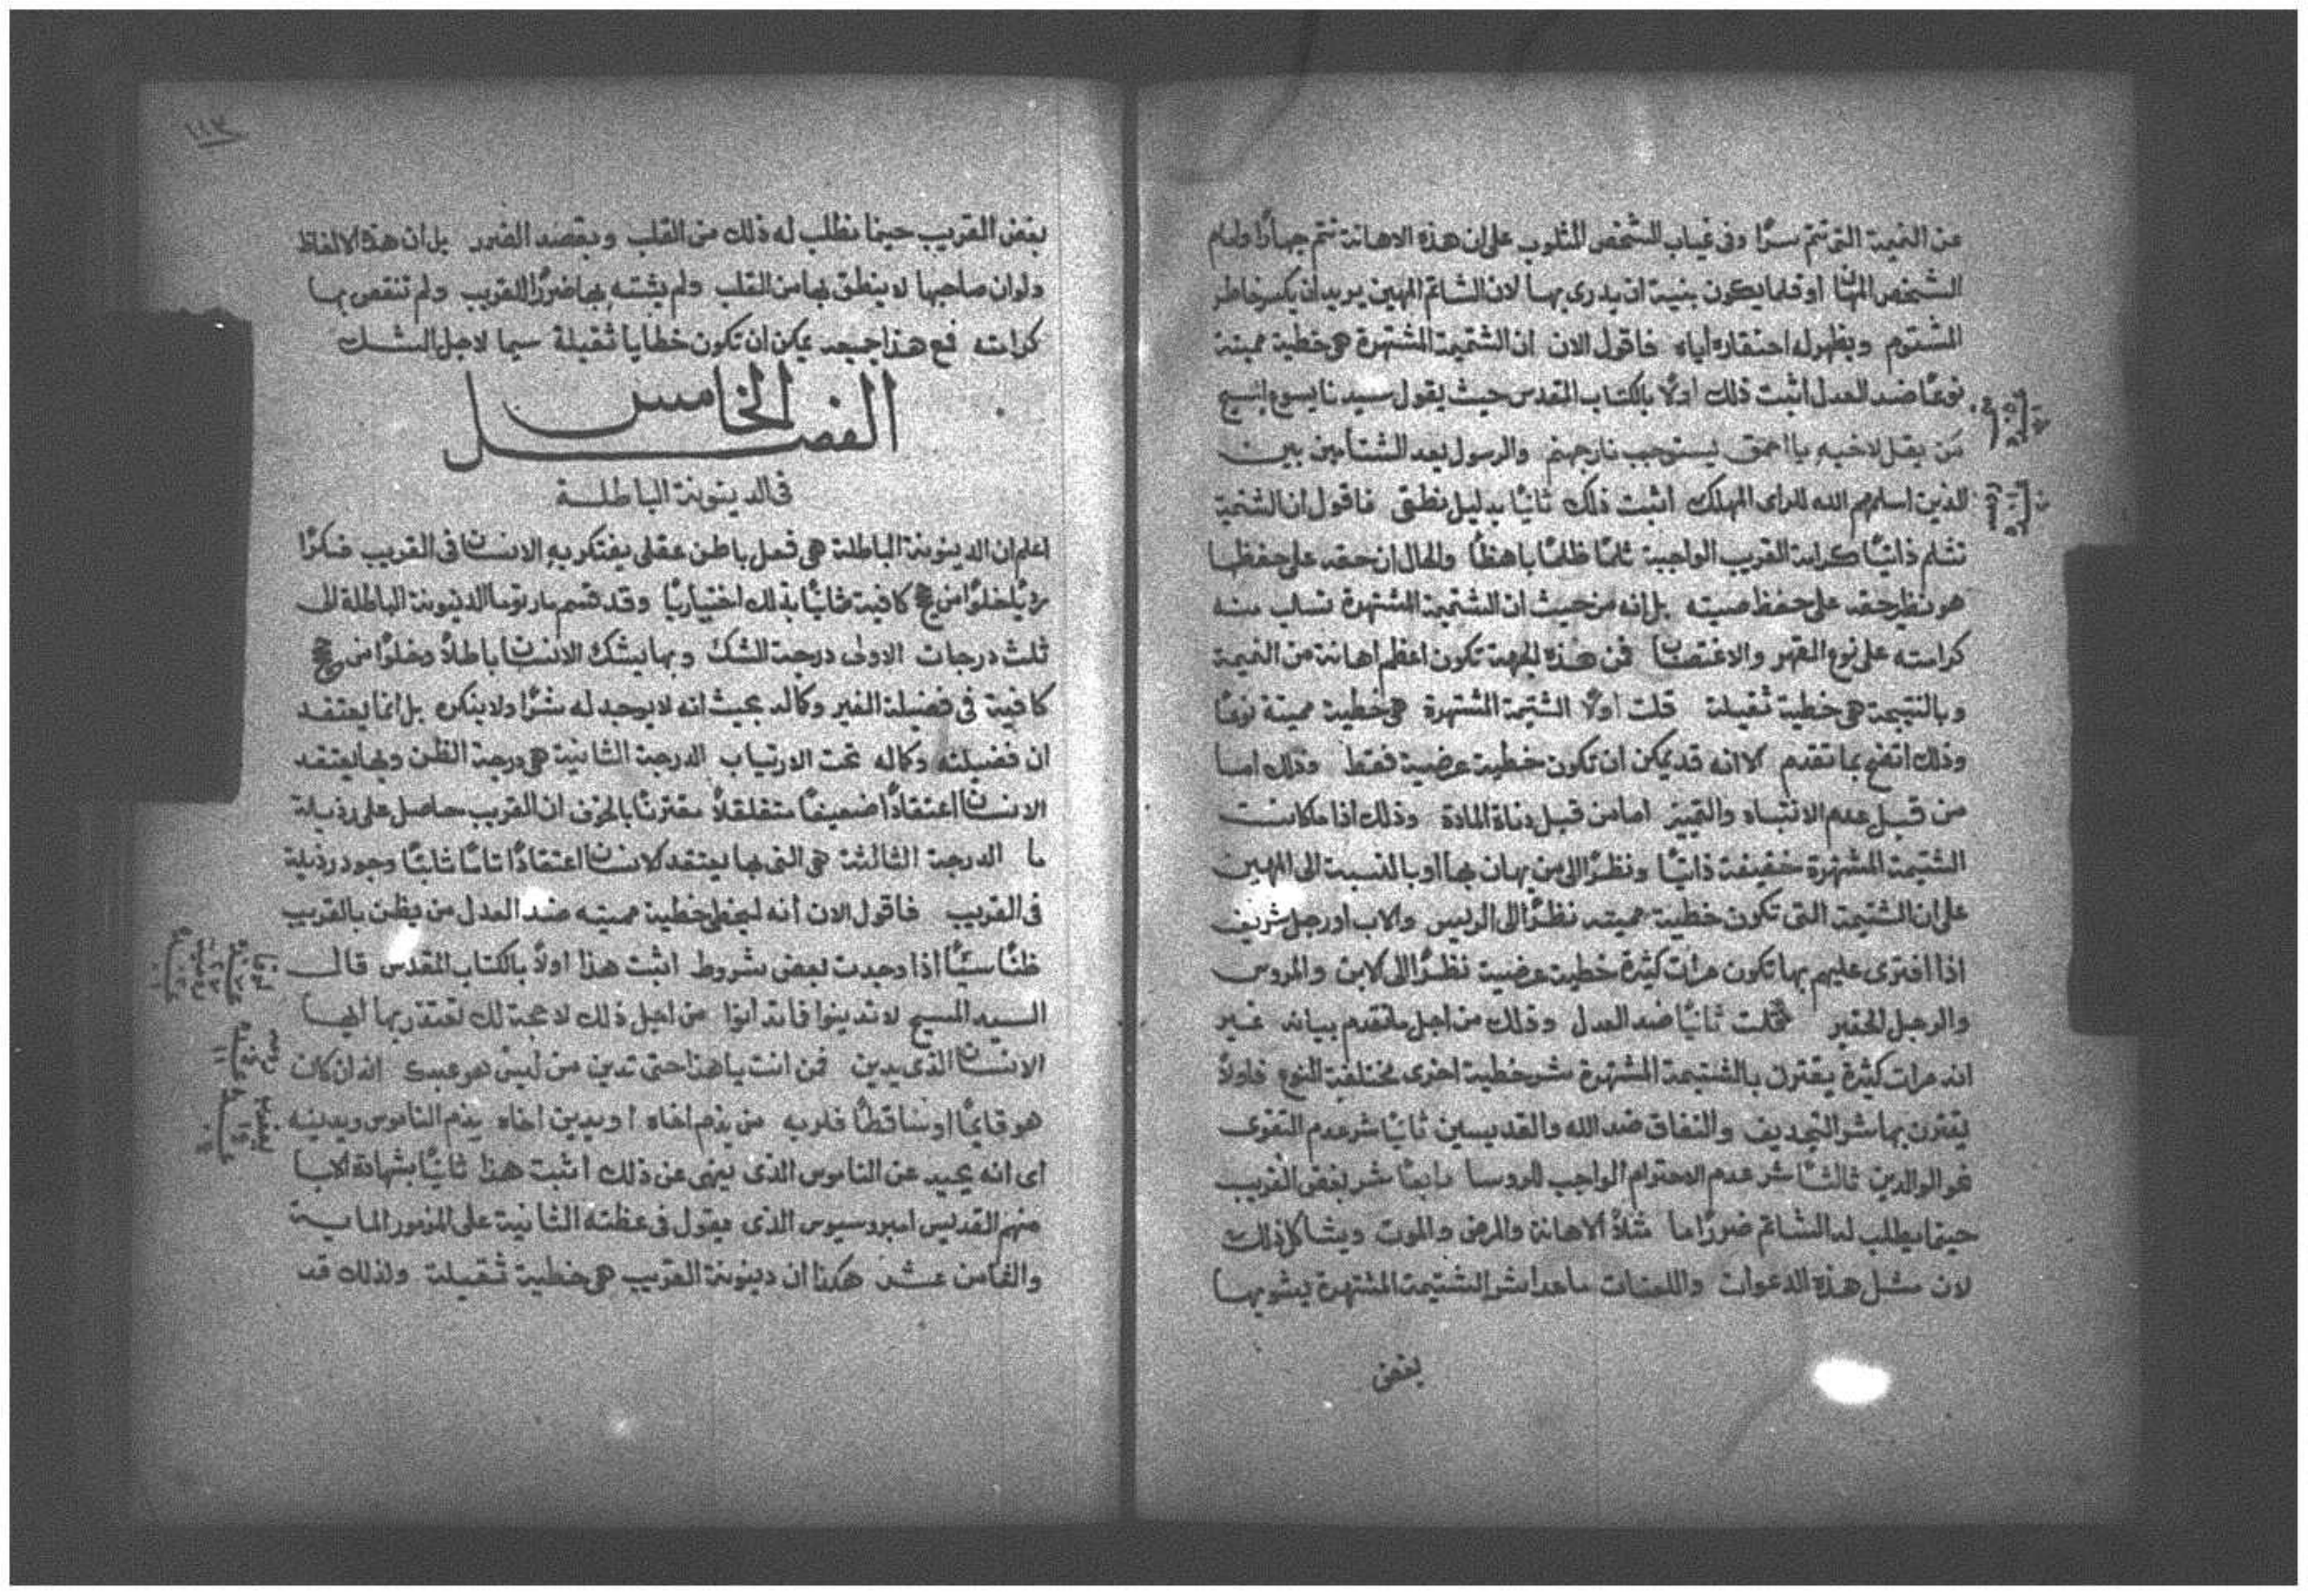 عن النميمة التي تتم سرًّا وفي غياب الشخص المثلوب على ان هذه الاهانة تتم جهارًا وامام
الشخص المهان او قلما يكون بنية ان يدرى بها لان الشاتم المهين يريد ان يكسر خاطر
المشتوم ويظهر له احتقاره اياه فاقول الان ان الشتيمة المشتهرة هي خطية مميتة
نوعًا ضد العدل اثبت ذلك اولًا بالكتاب المقدس حيث يقول سيدنا يسوع المسيح
مَن يقل لاخيه يا احمق يستوجب نار جهنم والرسول يعد الشتامين بين
الذين اسلمهم الله للراى المهلك اثبت ذلك ثانيًا بدليل نطقي فاقول ان الشتيمة
تثلم ذاتيًا كرامة القريب الواجبة ثلمًا ظلمًا باهظًا والحال ان حقه على حفظها
هو نظير حقه على حفظ صيته بل انه من حيث ان الشتيمة المشتهرة تسلب منه
كرامته على نوع القهر والاغتصاب فمن هذه الجهة تكون اعظم اهانة من النميمة
وبالنتيجة هي خطية ثقيلة قلت اولًا الشتيمة المشتهرة هي خطية مميتة نوعًا
وذلك اتضح بما تقدم لانه قد يمكن ان تكون خطية عرضية فقط وذلك اما
من قبل عدم الانتباه والتمييز اما من قبل دناة المادة وذلك اذا ما كانت
الشتيمة المشتهرة خفيفة ذاتيًا ونظرًا الى من يهان بها او بالنسبة الى المهين
على ان الشتيمة التي تكون خطية مميته نظرًا الى الريس والاب او رجل شريف
اذا افترى عليهم بها تكون مرات كثيرة خطية عرضية نظرًا الى الابن والمروس
والرجل الحقير قلت ثانيًا ضد العدل وذلك من اجل ما تقدم بيانه غير
انه مرات كثيرة يقترن بالشتيمة المشتهرة شر خطية اخرى مختلفة النوع فاولًا
يقترن بها شر التجديف والنفاق ضد الله والقديسين ثانيًا شر عدم التقوى
نحو الوالدين ثالثًا شر عدم الاحترام الواجب للروسا رابعًا شر بغض القريب
حينما يطلب له الشاتم ضررًا ما مثلًا الاهانة والمرض والموت ويشاكل ذلك
لان مثل هذه الدعوات واللعنات ماعدا شر الشتيمة المشتهرة يشوبها
بغض
بغض القريب حينما نطلب له ذلك من القلب وبقصد الضرر بل ان هذه الالفاظ
ولو ان صاحبها لا ينطق بها من القلب ولم يشته بها ضررًا للقريب ولم تنقص بها
كرامته فمع هذا جميعه يمكن ان تكون خطايا ثقيلة سيما لاجل الشك
الفصل الخامس
في الدينونة الباطلة
اعلم ان الدينونة الباطلة هي فعل باطن عقلي يفتكر به الانسان في القريب فكرًا
رديًا خلوًا من كافية ثانيًا بذلك اختياريًا وقد قسم مار توما الدينونة الباطلة الى
ثلث درجات الاولى درجة الشك وبها يشك الانسان باطلًا وخلوًا من
كافية في فضيلة الغير وكماله بحيث انه لا يوجد له شرًا ولا ينكره بل انما يعتقد
ان فضيلته وكماله تحت الارتياب الدرجة الثانية هي درجة الظن وبها يعتقد
الانسان اعتقادًا ضعيفًا متقلقلًا مقترنًا بالخوف ان القريب حاصل على رذيلة
ما الدرجة الثالثة هي التي بها يعتقد الانسان اعتقادًا تامًا ثابتًا وجود رذيلة
في القريب فاقول الان أنه ليخطى خطية مميته ضد العدل من يظن بالقريب
ظنًا سيئًا اذا وجدت بعض شروط اثبت هذا اولًا بالكتاب المقدس قال
السيد المسيح لا تدينوا فما تدانوا من اجل ذلك لا حجة لك تعتذر بها ايها
الانسان الذى يدين فمن انت يا هذا حتى تدين من ليس هو عبدك انه ان كان
هو قايمًا او ساقطًا فلربه من يذم اخاه او يدين اخاه يذم الناموس ويدينه
اى انه يحيد عن الناموس الذى ينهى عن ذلك اثبت هذا ثانيًا بشهادة الابا
منهم القديس امبروسيوس الذى يقول في عظته الثانية على المزمور الماية
والثامن عشر هكذا ان دينونة القريب هي خطية ثقيلة ولذلك قد